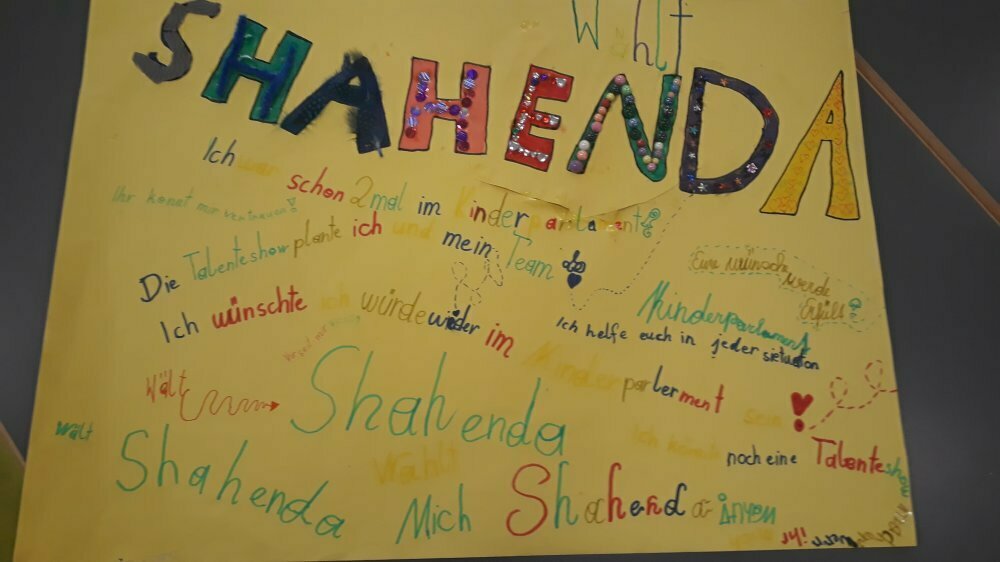 Wählt
SHAHENDA
Ich war schon 2mal im Kinderparlament
Ihr könnt mir vertrauen!
Die Talenteshow plante ich und mein Team
Eure wünsche werde Erfüllt
Ich wünschte ich würde wider im Kinderparlerment sein!
Kinderparlament
Ich helfe euch in jeder
Wält Shahenda
Ich könnte noch eine Talenteshow
wält
Shahenda
Wählt
Mich Shahenda
ihr